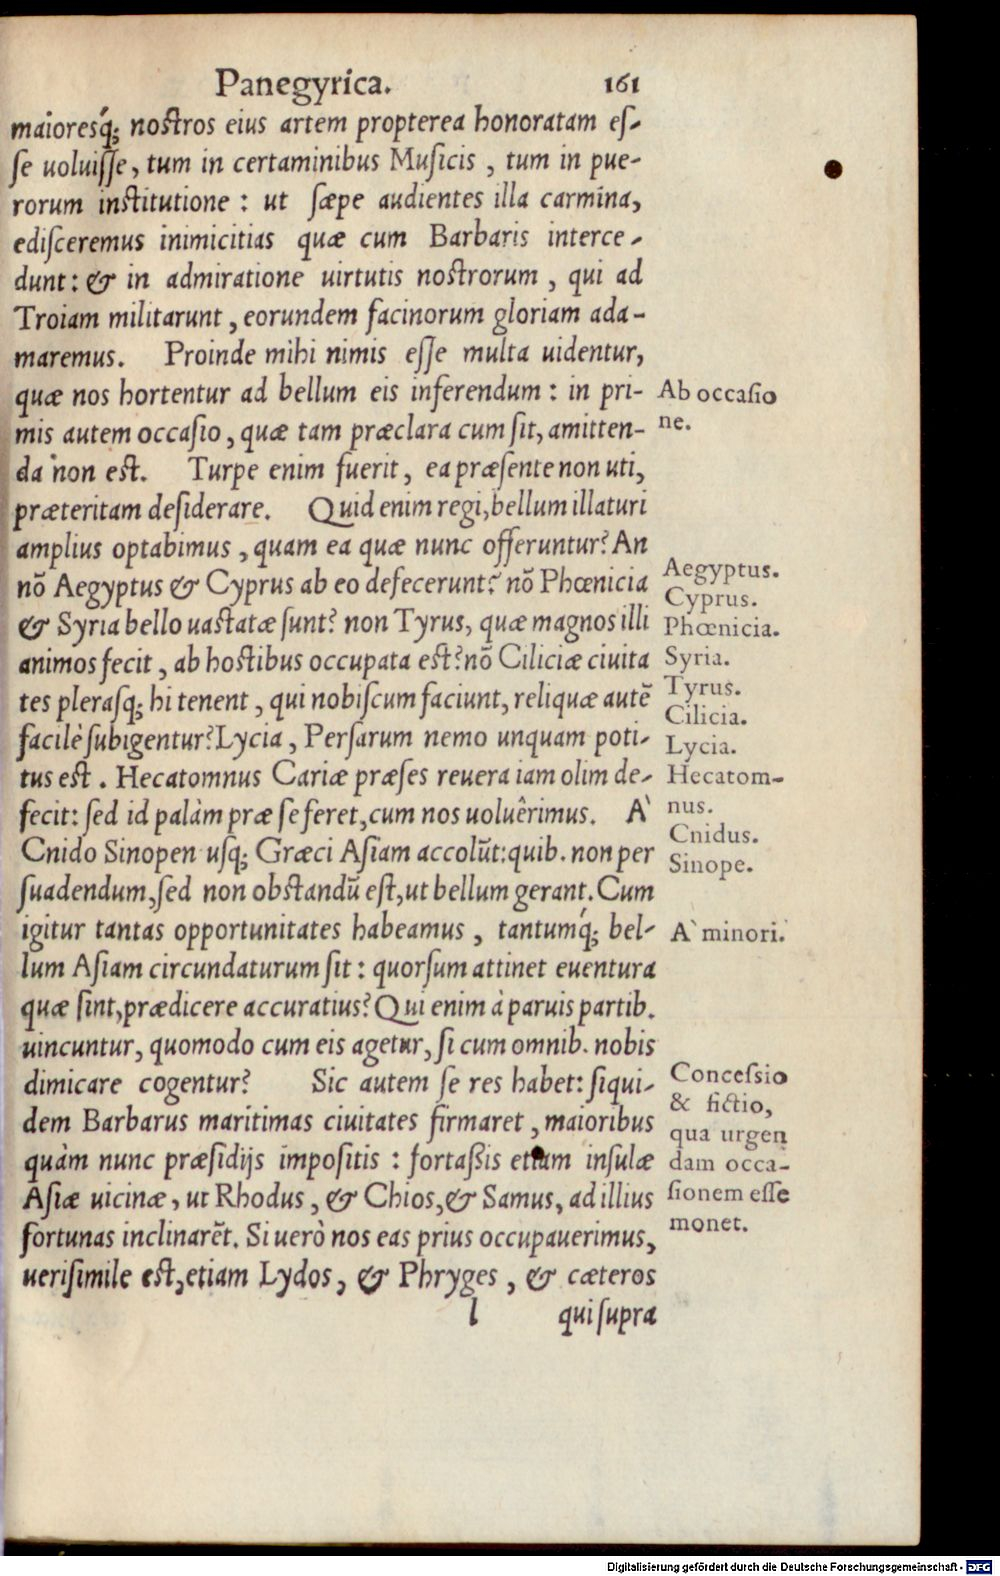 Panegyrica. 161
maioresq́; nostros eius artem propterea honoratam es-
se uoluisse, tum in certaminibus Musicis, tum in pue-
rorum institutione: ut sæpe audientes illa carmina,
edisceremus inimicitias quæ cum Barbaris interce-
dunt: & in admiratione uirtutis nostrorum, qui ad
Troiam militarunt, eorundem facinorum gloriam ada-
maremus. Proinde mihi nimis esse multa uidentur,
quæ nos hortentur ad bellum eis inferendum: in pri-
mis autem occasio, quæ tam præclara cum sit, amitten-
da non est. Turpe enim fuerit, ea præsente non uti,
præteritam desiderare. Quid enim regi, bellum illaturi
amplius optabimus, quam ea quæ nunc offeruntur? An
nō Aegyptus & Cyprus ab eo defecerunt? nō Phœnicia
& Syria bello uastatæ sunt? non Tyrus, quæ magnos illi
animos fecit, ab hostibus occupata est? nō Ciliciæ ciuita
tes plerasq; hi tenent, qui nobiscum faciunt, reliquæ autē
facilè subigentur? Lycia, Persarum nemo unquam poti-
tus est. Hecatomnus Cariæ præses reuera iam olim de-
fecit: sed id palàm præ se feret, cum nos uoluêrimus. A`
Cnido Sinopen usq; Græci Asiam accolūt: quib. non per
suadendum, sed non obstandū est, ut bellum gerant. Cum
igitur tantas opportunitates habeamus, tantumq́; bel-
lum Asiam circundaturum sit: quorsum attinet euentura
quæ sint, prædicere accuratius? Qui enim à paruis partib.
uincuntur, quomodo cum eis agetur, si cum omnib. nobis
dimicare cogentur? Sic autem se res habet: siqui-
dem Barbarus maritimas ciuitates firmaret, maioribus
quàm nunc præsidijs impositis: fortaßis etiam insulæ
Asiæ uicinæ, ut Rhodus, & Chios, & Samus, ad illius
fortunas inclinarēt. Si uerò nos eas prius occupauerimus,
uerisimile est, etiam Lydos, & Phryges, & cæteros
l qui supra
Ab occasio
ne.
Aegyptus.
Cyprus.
Phœnicia.
Syria.
Tyrus.
Cilicia.
Lycia.
Hecatom-
nus.
Cnidus.
Sinope.
A` minori.
Concessio
& fictio,
qua urgen
dam occa-
sionem esse
monet.
Digitalisierung gefördert durch die Deutsche Forschungsgemeinschaft - DFG